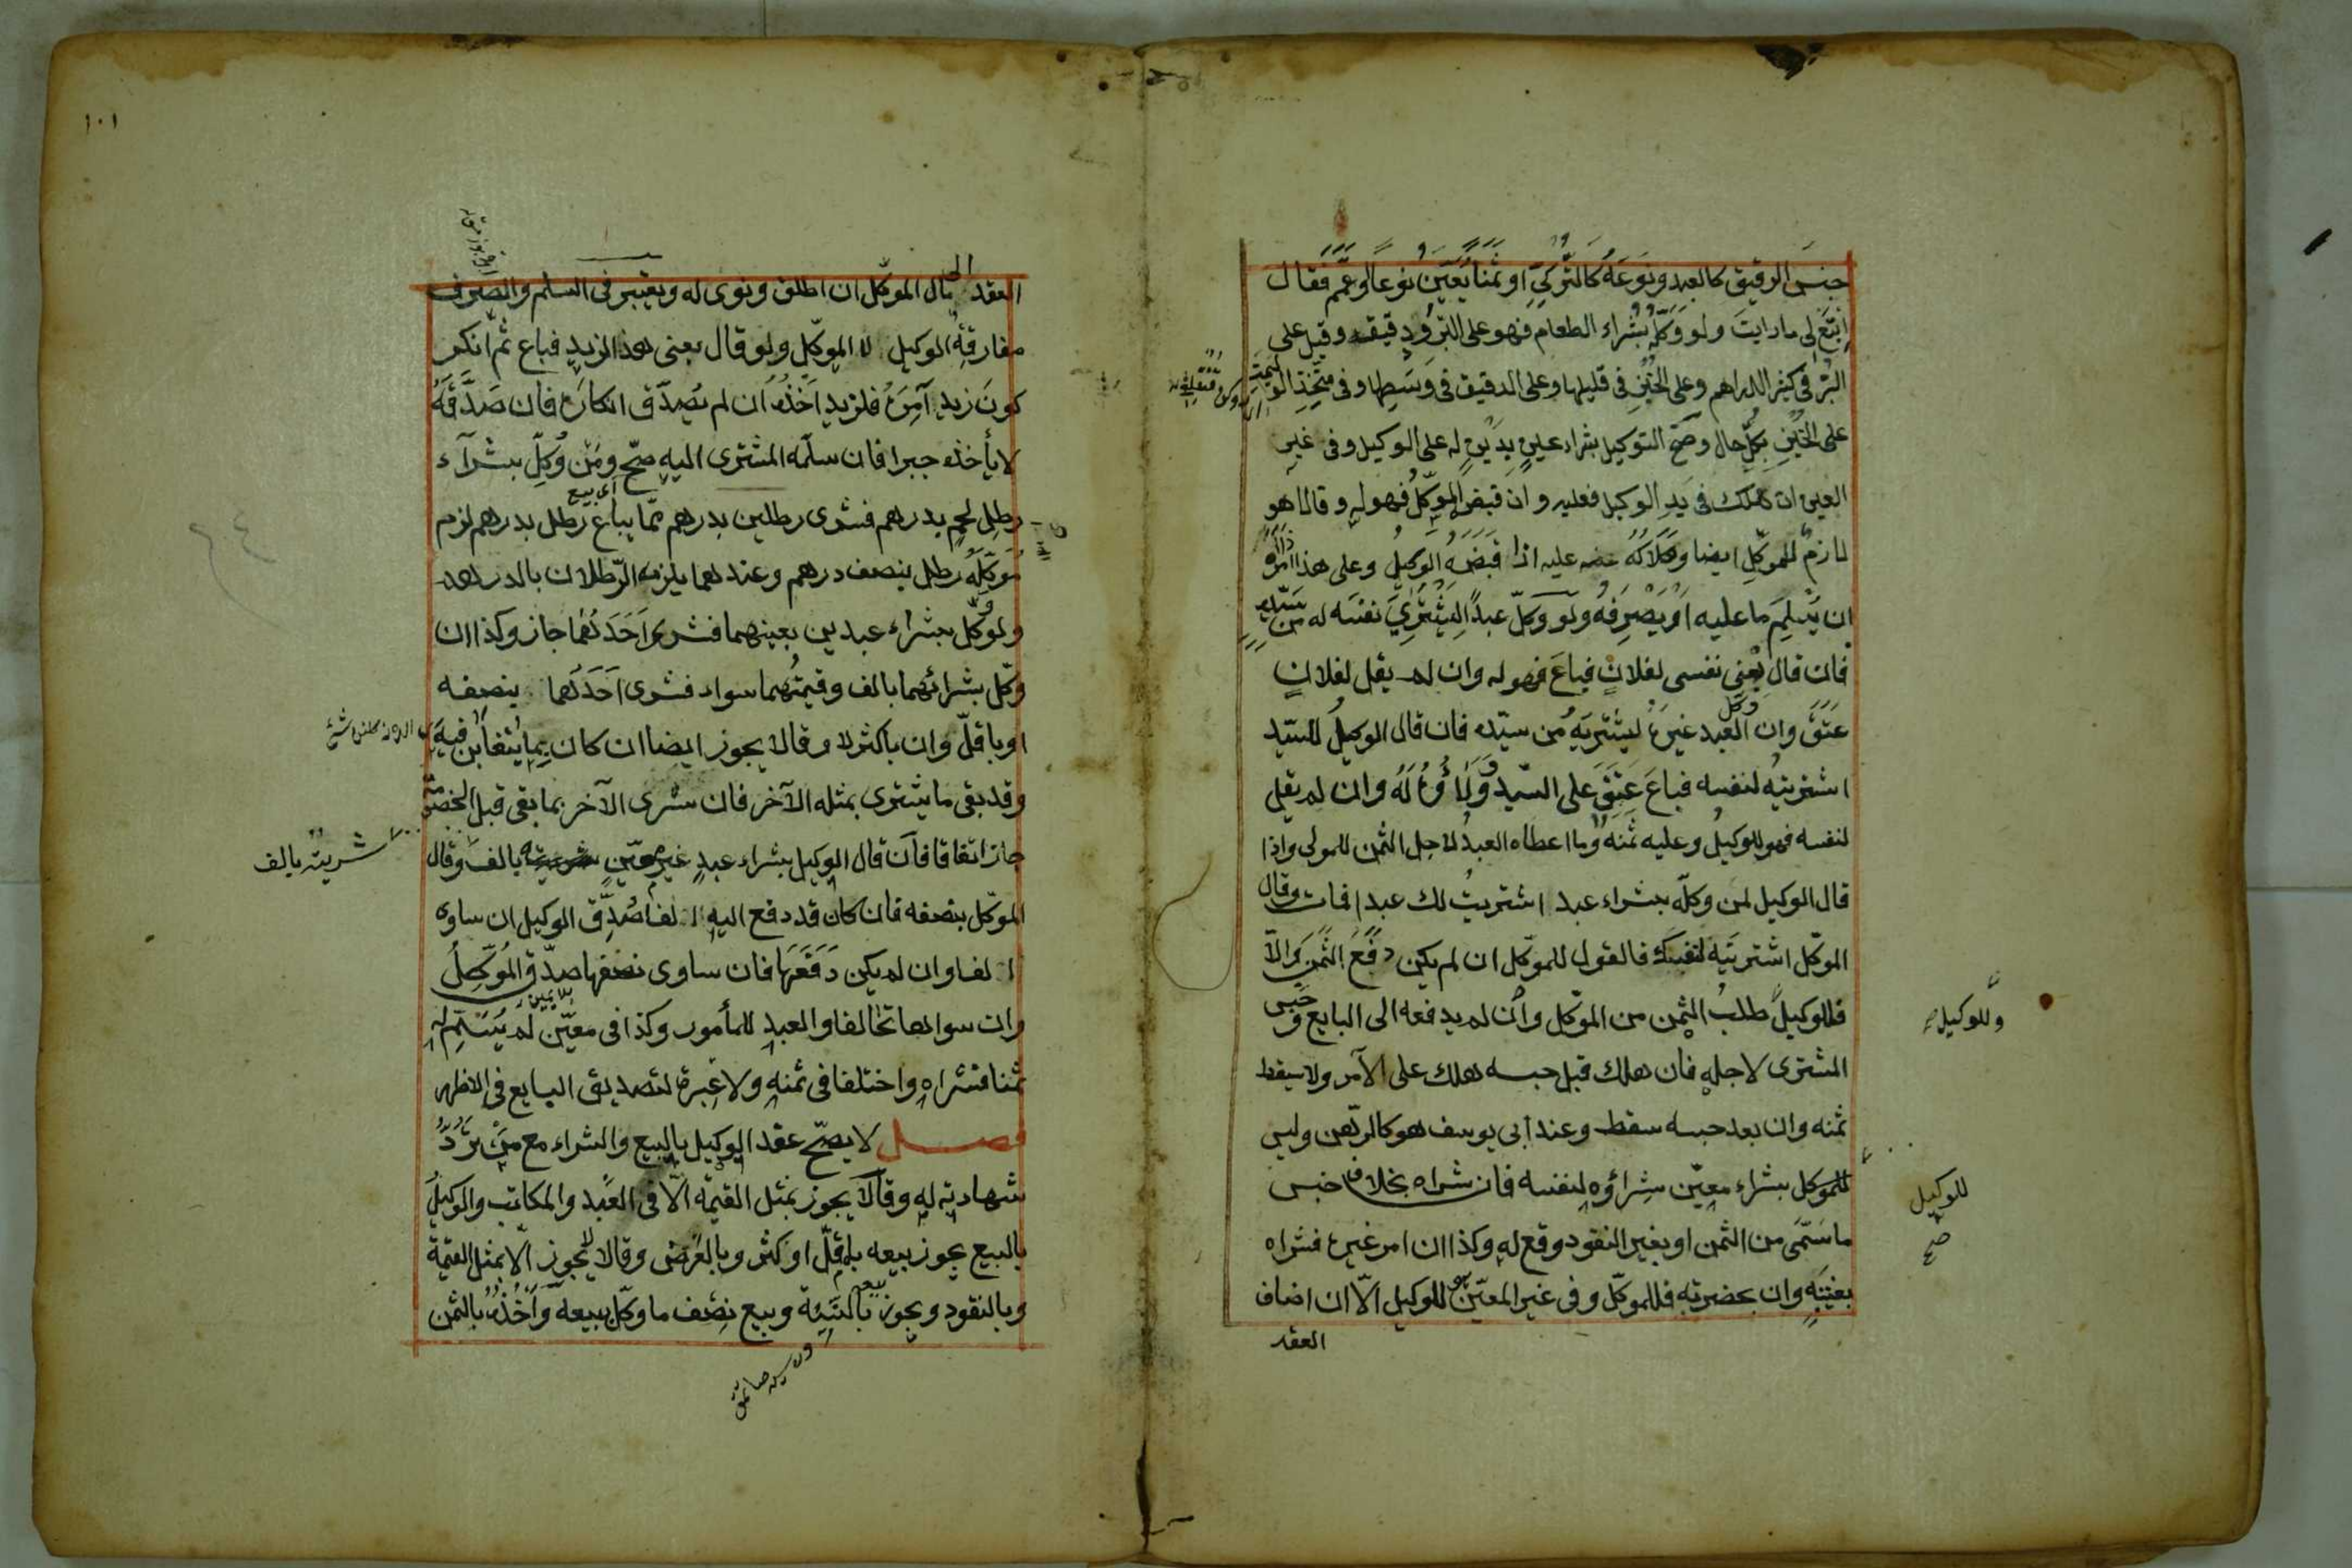 جنس الرقيق كالعبد ونوعه كالتركي او ثمنا يعين نوعا او عمم فقال
ابتع لي ما رايت ولو وكله بشراء الطعام فهو على البر ودقيقه وقيل على
البر في كثير الدراهم وعلى الخبز في قليلها وعلى الدقيق في وسطها وفي متخذ الوليمة
على الخبز بكل حال وصح التوكيل بشراء عين بدين له على الوكيل وفي غير
العين ان هلك في يد الوكيل فعليه وان قبض الموكل فهو له وقالا هو
لازم للموكل ايضا وهلاكه عليه اذا قبضه الوكيل وعلى هذا اذا امره
ان يسلم ما عليه او يصرفه ولو وكل عبدا ليشتري نفسه له من سيده
فان قال بعني نفسي لفلان فباع فهو له وان لم يقل لفلان
عتق وان وكل العبد غيره ليشتريه من سيده فان قال الوكيل للسيد
اشتريته لنفسه فباع عتق على السيد وولاؤه له وان لم يقل
لنفسه فهو للوكيل وعليه ثمنه وما اعطاه العبد لاجل الثمن للمولى واذا
قال الوكيل لمن وكله بشراء عبد اشتريت لك عبدا فمات وقال
الموكل اشتريته لنفسك فالقول للموكل ان لم يكن دفع الثمن والا
فللوكيل طلب الثمن من الموكل وان لم يدفعه الى البايع وحبس
وللوكيل
المشترى لاجله فان هلك قبل حبسه هلك على الآمر ولا يسقط
ثمنه وان بعد حبسه سقط وعند ابي يوسف هو كالرهن وليس
للموكل بشراء معين شراؤه لنفسه فان شراه بخلاف جنس
للوكيل
صح
ما سمى من الثمن او بغير النقود وقع له وكذا ان امر غيره فشراه
بغيبته وان بحضرته فللموكل وفي غير المعين هو للوكيل الا ان اضاف
العقد
١٠١
العقد الى مال الموكل ان اطلق ونوى له ويعتبر في السلم والصرف
مفارقة الوكيل لا الموكل ولو قال بعني هذا لزيد فباع ثم انكر
كون زيد آمره فلزيد اخذه ان لم يصدق انكاره فان صدقه
لا يأخذه جبرا فان سلمه المشتري اليه صح ومن وكل بشراء
رطل لحم بدرهم فشرى رطلين بدرهم مما يباع رطل بدرهم لزم
اى بيع
موكله رطل بنصف درهم وعندهما يلزمه الرطلان بالدرهم
ولو وكل بشراء عبدين بعينهما فشرى احدهما جاز وكذا ان
وكل بشرائهما بالف وقيمتهما سواء فشرى احدهما بنصفه
او باقل وان باكثر لا وقالا يجوز ايضا ان كان بما يتغابن فيه
وقد بقى ما يشترى بمثله الآخر فان شرى الآخر بما بقى قبل الخصومة
جاز اتفاقا فان قال الوكيل بشراء عبد غير معين شريته بالف وقال
شريته بالف
الموكل بنصفه فان كان قد دفع اليه الالف صدق الوكيل ان ساوى
الالف وان لم يكن دفعها فان ساوى نصفها صدق الموكل
وان سواها تحالفا والعبد للمأمور وكذا في معين لم يسم له
بلا يمين
ثمنا فشراه واختلفا في ثمنه ولا عبرة لتصديق البايع في الاظهر
فصل لا يصح عقد الوكيل بالبيع والشراء مع من ترد
شهادته له وقالا يجوز بمثل القيمة الا في العبد والمكاتب والوكيل
بالبيع يجوز بيعه بما قل او كثر وبالعرض وقالا لا يجوز الا بمثل القيمة
وبالنقود ويجوز بيعه بالنسيئة وبيع نصف ما وكل ببيعه واخذه بالثمن